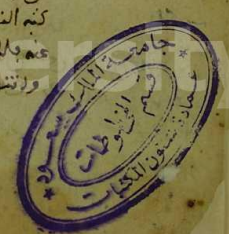 كنه الن
جامعة الملك سعود
قسم
المخطوطات
عمادة شئون المكتبات